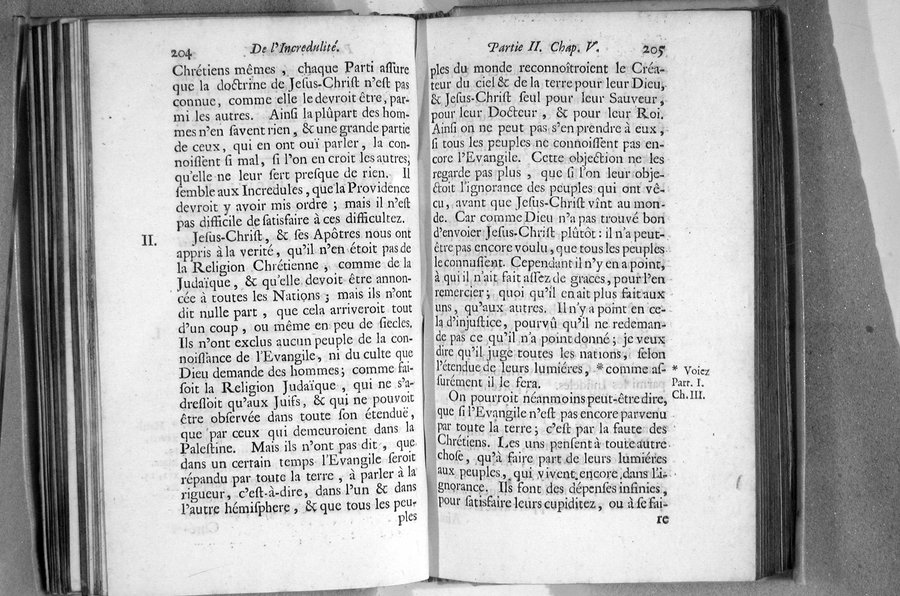 204 De l'Incredulité.
Chrêtiens mêmes , chaque Parti aſſure
que la doctrine de Jeſus-Chriſt n'eſt pas
connue, comme elle le devroit être, par-
mi les autres. Ainſi la plûpart des hom-
mes n'en ſavent rien, & une grande partie
de ceux, qui en ont ouï parler, la con-
noiſſent ſi mal, ſi l'on en croit les autres,
qu'elle ne leur ſert preſque de rien. Il
ſemble aux Incredules, que la Providence
devroit y avoir mis ordre ; mais il n'eſt
pas difficile de ſatisfaire à ces difficultez.
II. Jeſus-Chriſt, & ſes Apôtres nous ont
appris à la verité, qu'il n'en étoit pas de
la Religion Chrêtienne , comme de la
Judaïque, & qu'elle devoit être annon-
cée à toutes les Nations ; mais ils n'ont
dit nulle part , que cela arriveroit tout
d'un coup , ou même en peu de ſiecles.
Ils n'ont exclus aucun peuple de la con-
noiſſance de l'Evangile, ni du culte que
Dieu demande des hommes; comme fai-
ſoit la Religion Judaïque , qui ne s'a-
dreſſoit qu'aux Juifs, & qui ne pouvoit
être obſervée dans toute ſon étenduë,
que par ceux qui demeuroient dans la
Paleſtine. Mais ils n'ont pas dit , que
dans un certain temps l'Evangile ſeroit
répandu par toute la terre , à parler à la
rigueur, c'eſt-à-dire, dans l'un & dans
l'autre hémiſphere, & que tous les peu-
ples
Partie II. Chap. V. 205
ples du monde reconnoîtroient le Créa-
teur du ciel & de la terre pour leur Dieu,
& Jeſus-Chriſt ſeul pour leur Sauveur,
pour leur Docteur , & pour leur Roi.
Ainſi on ne peut pas s'en prendre à eux,
ſi tous les peuples ne connoiſſent pas en-
core l'Evangile. Cette objection ne les
regarde pas plus , que ſi l'on leur obje-
ctoit l'ignorance des peuples qui ont vê-
cu, avant que Jeſus-Chriſt vînt au mon-
de. Car comme Dieu n'a pas trouvé bon
d'envoier Jeſus-Chriſt plûtôt: il n'a peut-
être pas encore voulu, que tous les peuples
le connuſſent. Cependant il n'y en a point,
à qui il n'ait fait aſſez de graces, pour l'en
remercier; quoi qu'il en ait plus fait aux
uns, qu'aux autres. Il n'y a point en ce-
la d'injuſtice, pourvû qu'il ne redeman-
de pas ce qu'il n'a point donné; je veux
dire qu'il juge toutes les nations, ſelon
l'étendue de leurs lumiéres, * comme aſ-
ſurément il le fera.
* Voiez
Part. I.
Ch. III.
On pourroit néanmoins peut-être dire,
que ſi l'Evangile n'eſt pas encore parvenu
par toute la terre; c'eſt par la faute des
Chrétiens. Les uns penſent à toute autre
choſe, qu'à faire part de leurs lumiéres
aux peuples, qui vivent encore dans l'i-
gnorance. Ils font des dépenſes infinies,
pour ſatisfaire leurs cupiditez, ou à ſe fai-
re